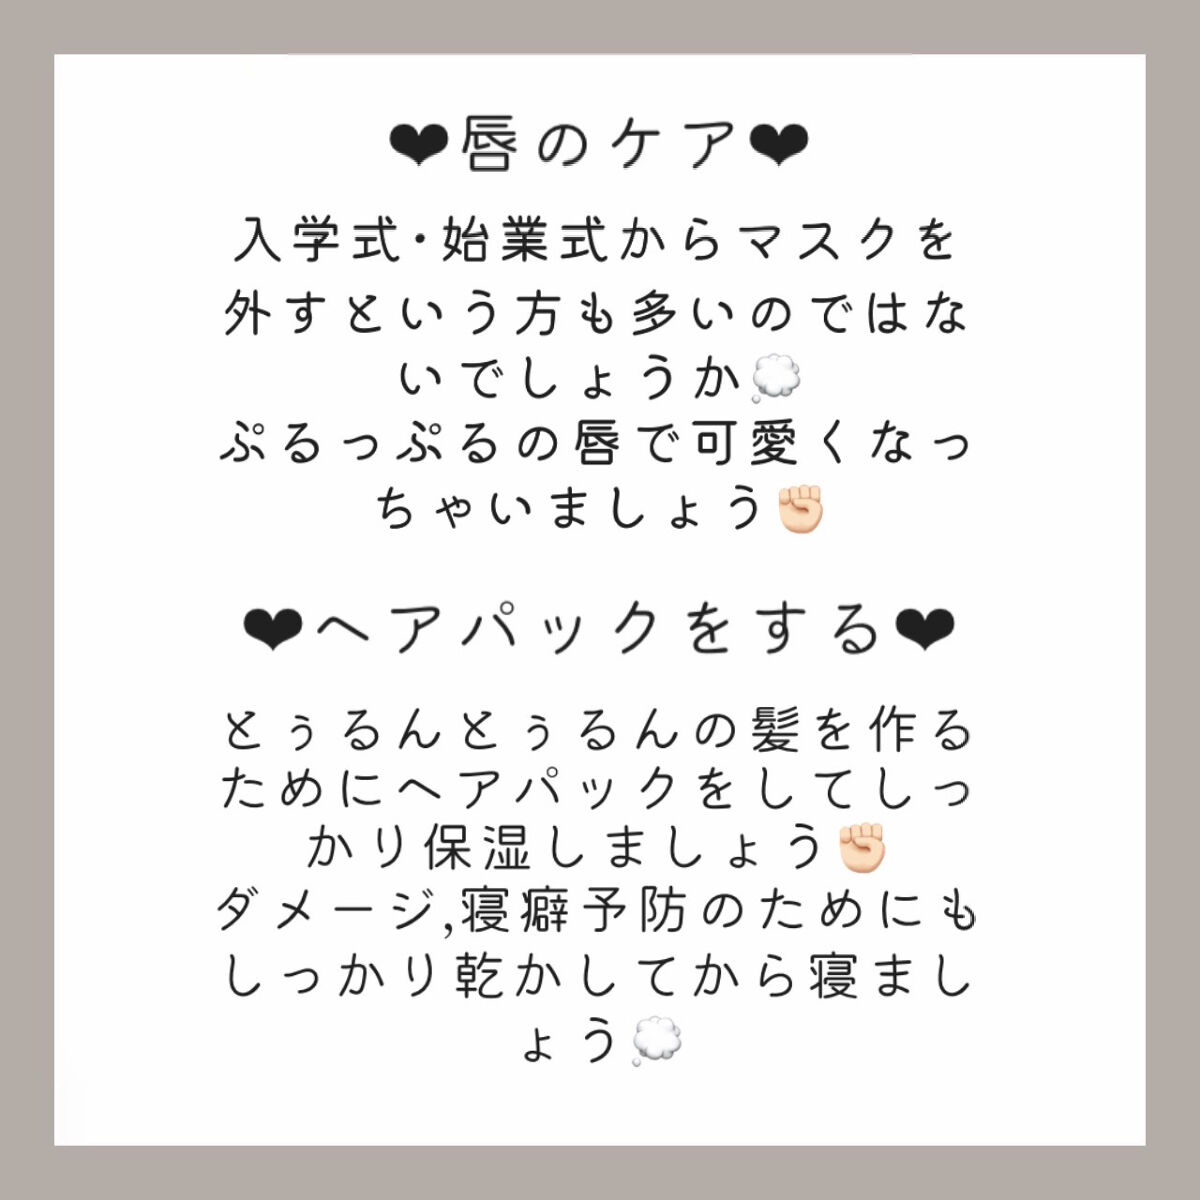 ❤唇のケア❤
入学式·始業式からマスクを
外すという方も多いのではな
いでしょうか💭
ぷるっぷるの唇で可愛くなっ
ちゃいましょう✊🏻
❤ヘアパックをする❤
とぅるんとぅるんの髪を作る
ためにヘアパックをしてしっ
かり保湿しましょう✊🏻
ダメージ,寝癖予防のためにも
しっかり乾かしてから寝まし
ょう💭